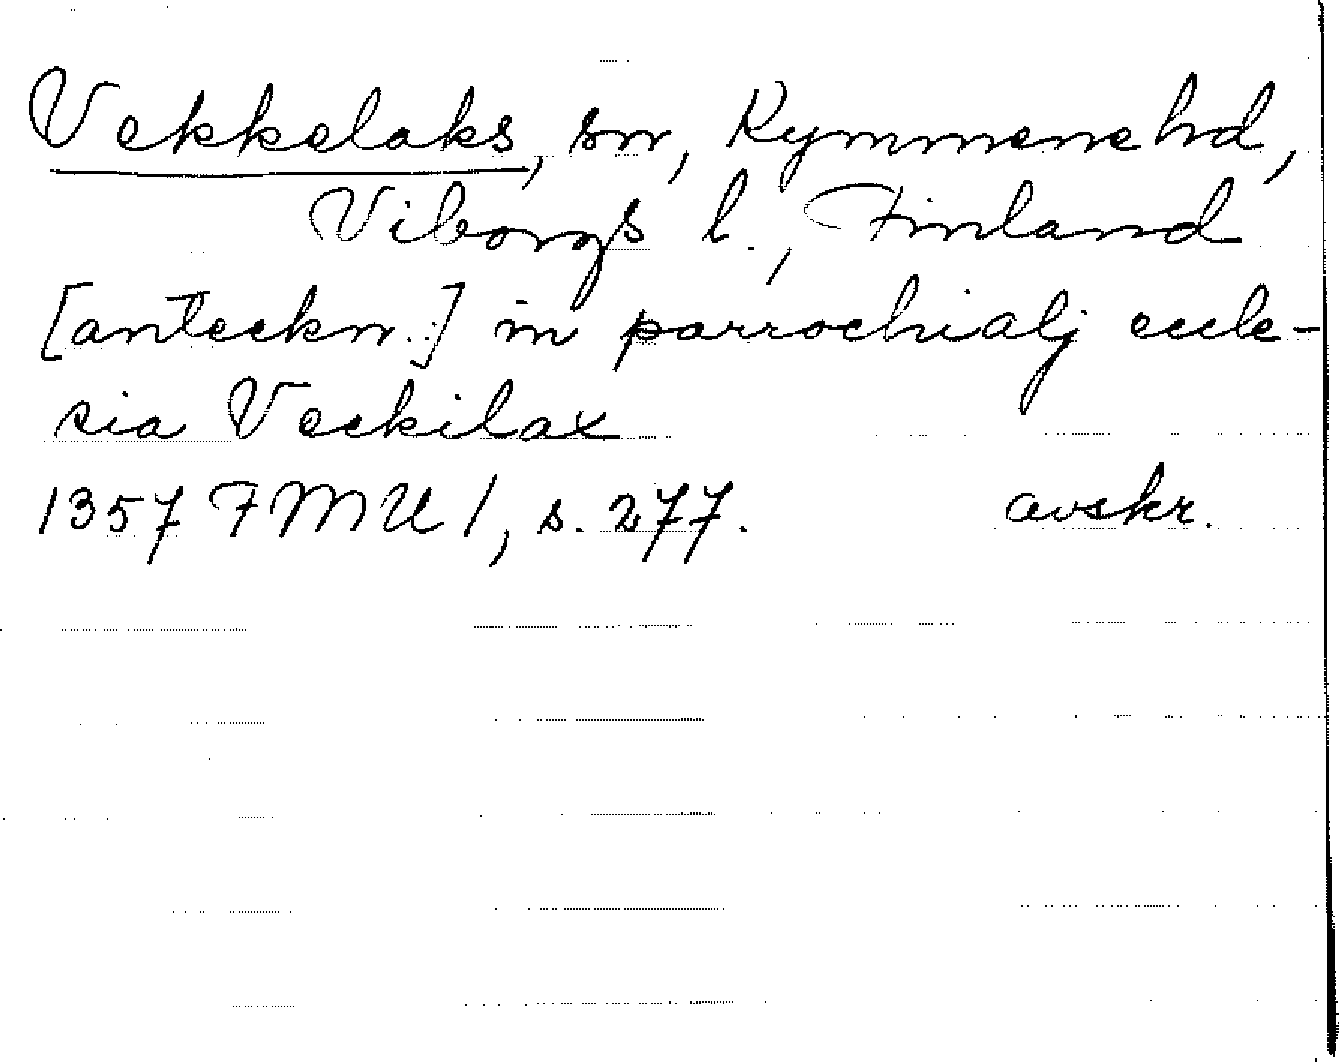 Vekkelaks, sn, Kymmene hd,
Viborgs l., Finland
[anteckn.:] in parrochialj eccle-
sia Veckilax
1357 FMU 1, s. 277. avskr.